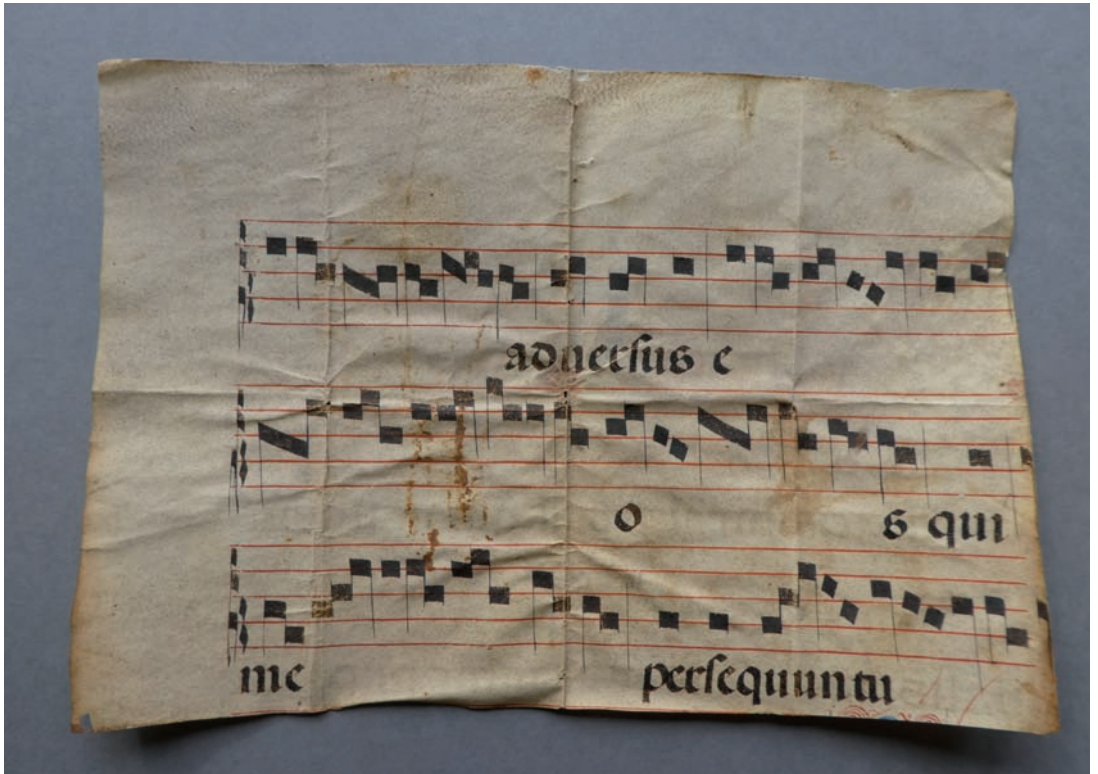 aduersus e
o s qui
me persequuntu